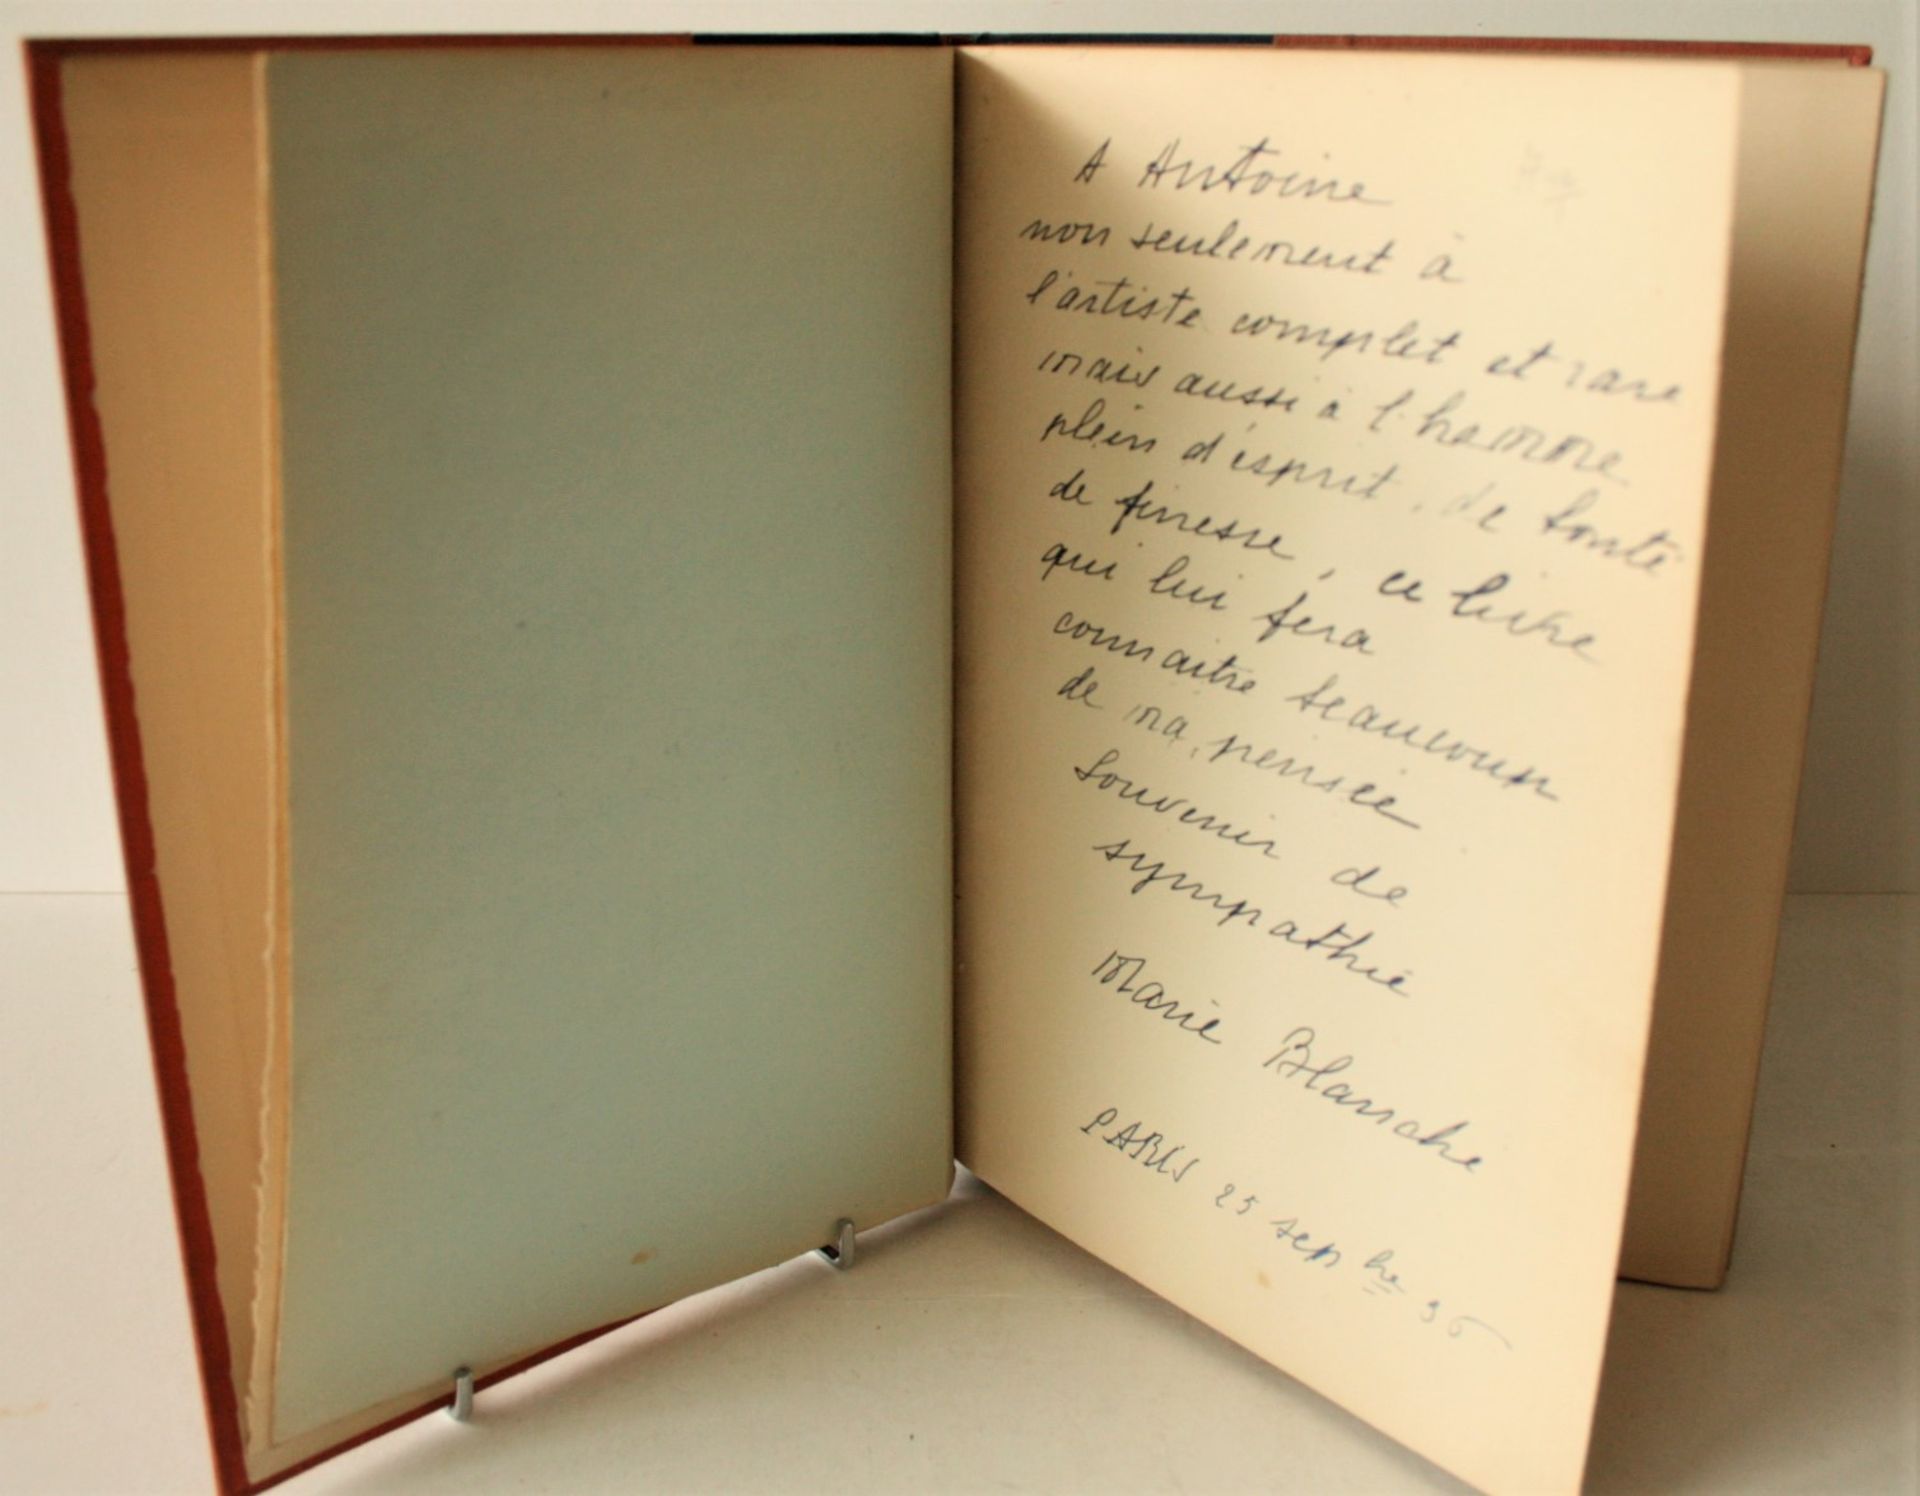 A Antoine
non seulement à
l'artiste complet et rare
mais aussi à l'homme
plein d'esprit, de bonté
de finesse, ce livre
qui lui fera
connaitre beaucoup
de ma pensée
Souvenir de
sympathie
Marie Blansche
PARIS 25 sep bre 36